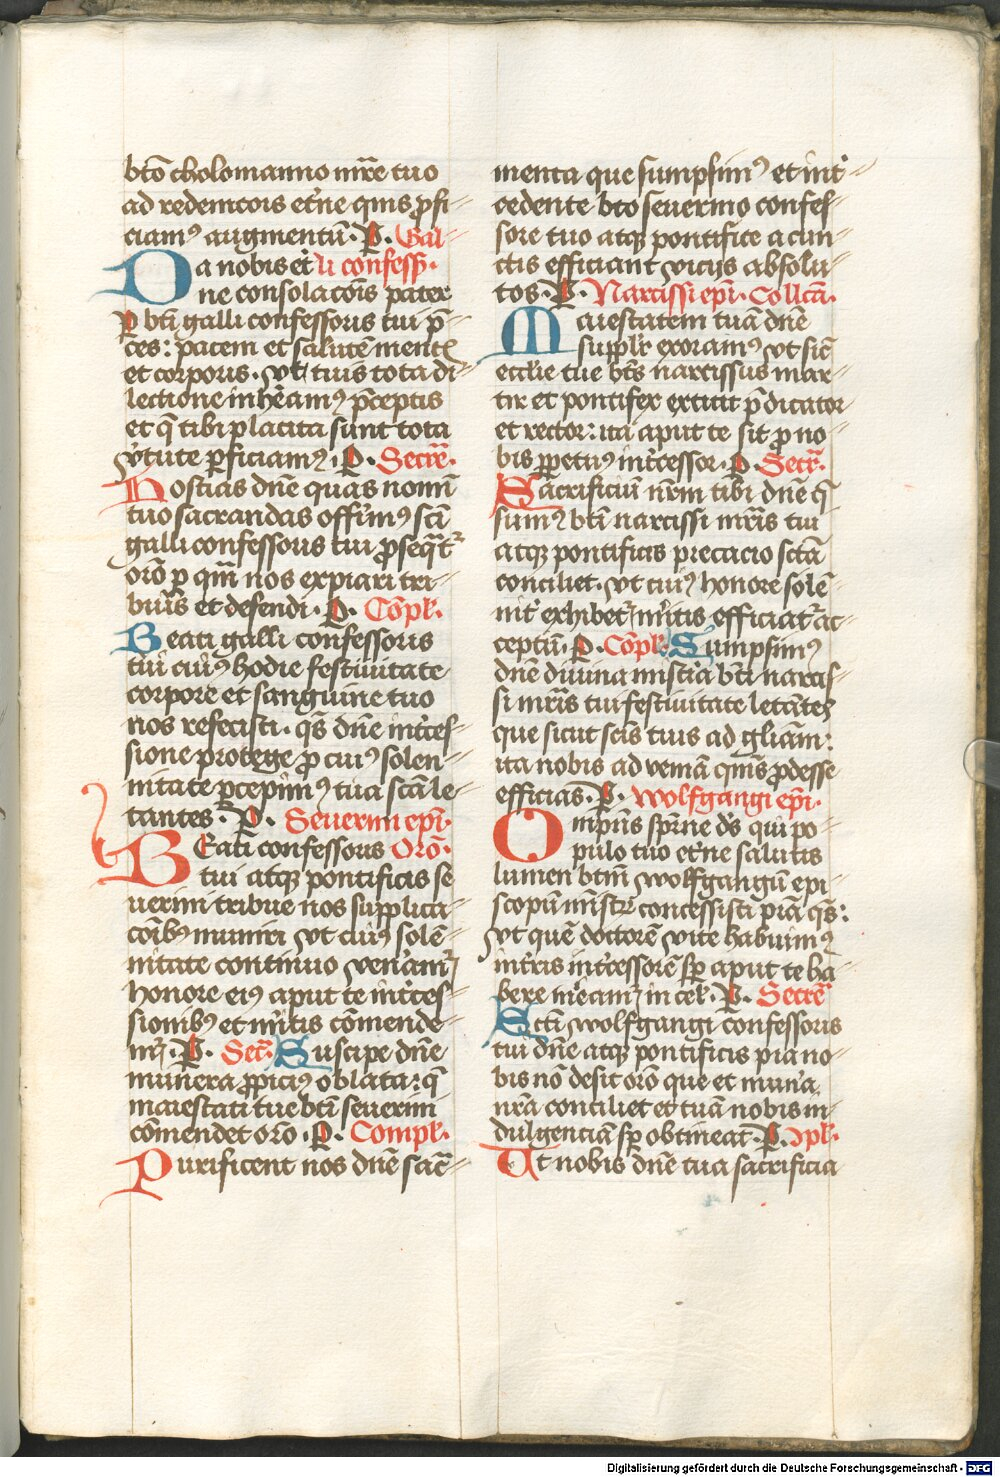 btō cholomanno mr̄e tuo
ad redempcōis et̄ne qm̄s ꝓfi⸗
ciamꝰ augmentū· P̱· Gal⸗
Da nobis et̄ li confess̄·
ne consolacōis pater
P̱ bt̄i galli confessoris tui p̄⸗
ces: pacem et salutē mentꝭ
et corporis· vt tuis tota di⸗
lectione inher̄amꝰ p̄ceptis
et q̄ tibi placita sunt tota
v̄tute ꝑficiamꝰ· P̱· Secre̅·
Hostias dn̄e quas nomī
tuo sacrandas offim̄ꝰ scī
galli confessoris tui ꝓseq̄t᷑
orō ꝑ qm̄ nos expiari tri⸗
buis et defendi· P̱· Cōpl̄·
Beati galli confessoris
tui cuiꝰ hodie festiuitate
corpore et sanguine tuo
nos refecisti· qs̄ dn̄e int̄ces⸗
sione protege ꝓ cuiꝰ solen⸗
nitate ꝑcepimꝰ tua scā le⸗
tantes· P̱· Seuerini ep̄i·
Beati confessoris Orō·
tui atqꝫ pontificis se⸗
uerini tribue nos supplica⸗
cōibꝰ muniri vt cuiꝰ solē⸗
nitate continuo venamꝛ̄
honore eiꝰ aput te int̄ces⸗
sionibꝰ et mītis cōmende⸗
mꝛ̄· P̱· Secr̄· Suscipe dn̄e
munera ꝓpiciꝰ oblata: q̄
maiestati tue bt̄i seuerini
cōmendet orō· P̱· Compl̄·
Purificent nos dn̄e sac̄⸗
menta que sumpsimꝰ et int̄⸗
cedente btō seuerino confes⸗
sore tuo atqꝫ pontifice a cun⸗
ctis efficiant vicijs absolu⸗
tos· P̱· Narcissi ep̄i· Collcā·
Maiestatem tuā dn̄e
suppl̄r exoramꝰ vt sic̄
eccl̄ie tue bt̄s narcissus mar⸗
tir et pontifex extitit p̄dicator
et rector: ita aput te sit ꝓ no⸗
bis ꝑpetuꝰ int̄cessor· P̱· Secr̄·
Sacrificiū nr̄m tibi dn̄e q̄⸗
sumꝰ bt̄i narcissi mr̄is tui
atqꝫ pontificis precacio sctā
conciliet· vt cuiꝰ honore solē⸗
nit̄ exhibet᷑ mītis efficiat᷑ ac⸗
ceptū· P̱· Cōpl̄· Sumpsimꝰ
dn̄e diuina mistīa bt̄i narcis⸗
si mr̄is tui festiuitate letātes
que sicut scīs tuis ad gl̄iam:
ita nobis ad veniā qm̄s ꝓdesse
efficias· P̱· Wolfgangi ep̄i·
Omps̄ sp̄ne ds̄ qui po⸗
pulo tuo et̄ne salutis
lumen bt̄m wolfgangū epi⸗
scopū mīstr̄ concessisti p̄sta q̄s:
vt quē doctorē vite habuimꝰ
in tr̄is int̄cessorē sꝑ aput te ha⸗
bere me̅amꝛ in cel̄· P̱· Secre̅
Scti wolfgangi confessoris
tui dn̄e atqꝫ pontificis pia no⸗
bis nō desit orō que et mun̄a
nr̄a conciliet et tuā nobis in⸗
dulgenciā sꝑ obtineat· P̱· Cpl̄·
Ut nobis dn̄e tua sacrificia
Digitalisierung gefördert durch die Deutsche Forschungsgemeinschaft - DFG